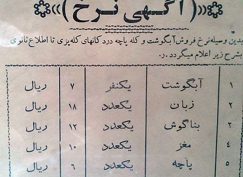 ((آگهی نرخ))
بدین وسیله نرخ فروش آبگوشت و کله پاچه در دکانهای کله‌پزی تا اطلاع ثانوی
بشرح زیر اعلام میگردد.
۱ آبگوشت یکنفر ۷ ریال
۲ زبان یکعدد ۱۸ ریال
۳ بناگوش یکعدد ۱۲ ریال
۴ مغز یکعدد ۱۰ ریال
۵ پاچه یکعدد ۶ ریال